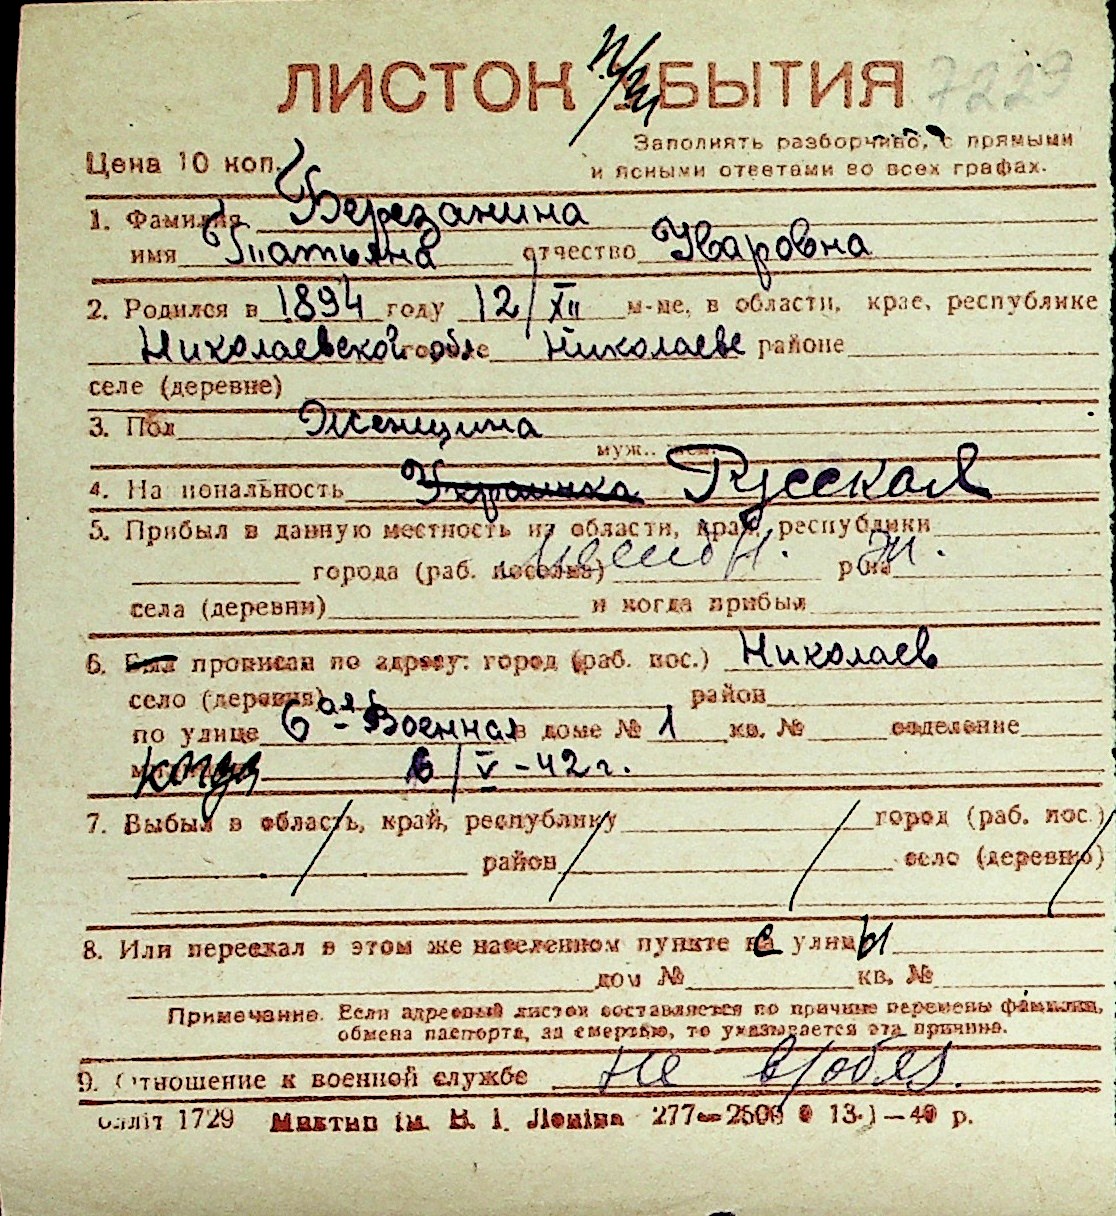 ЛИСТОК ПРИБЫТИЯ 7229
Заполнять разборчиво, с прямыми
Цена 10 коп. и ясными ответами во всех графах.
1. Фамилия Березанина
имя Татьяна отчество Уваровна
2. Родился в 1894 году 12/XII м-це, в области, крае, республике
Николаевской обл городе Николаеве районе
селе (деревне)
3. Пол Женщина
муж.. жен.
4. Национальность Украинка Русская
5. Прибыл в данную местность из области, края, республики
города (раб. поселка) Местн. р-на Ж.
села (деревни) и когда прибыл
6. Был прописан по адресу: город (раб. пос.) Николаев
село (деревня) район
по улице 6ая - Военная в доме № 1 кв. № отделение
когда 6/V - 42 г.
7. Выбыл в область, край, республику город (раб. пос.)
район село (деревню)
8. Или переехал в этом же населенном пункте с улицы
дом № кв. №
Примечание. Если адресный листок составляется по причине перемены фамилии,
обмена паспорта, за смертью, то указывается эта причина.
9. Отношение к военной службе не в/обяз.
Облліт 1729 Миктип ім. В. І. Леніна 277—2500 13·1—40 р.